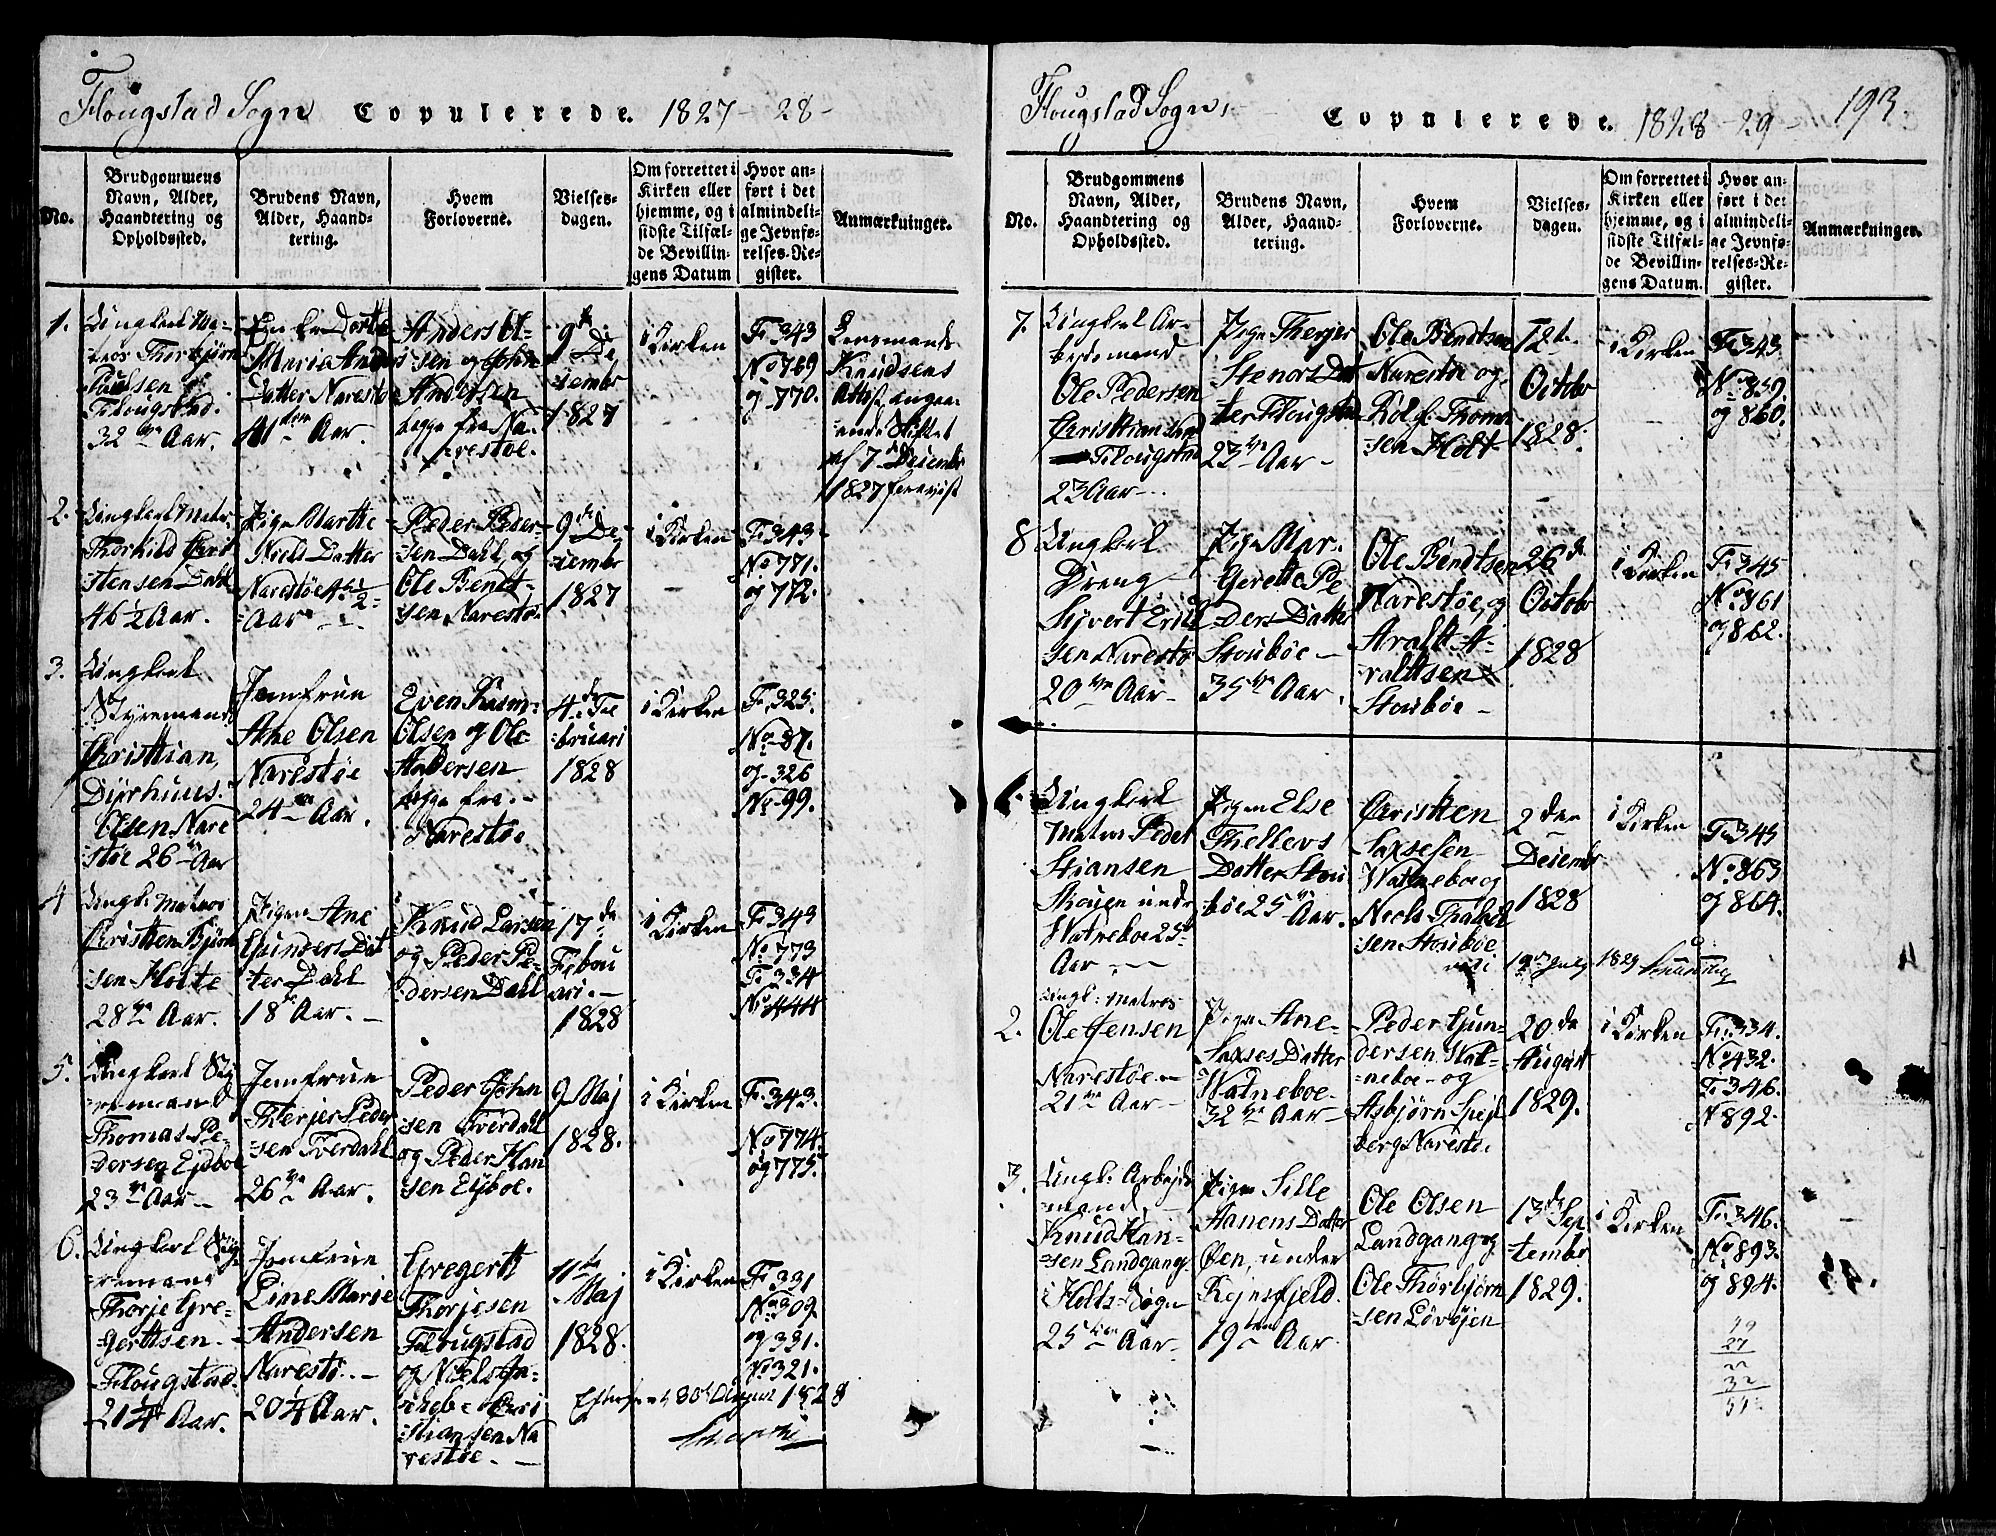 Flougstad Sogn Copulerede. 1827-28-
No.
Brudgommens
Navn, Alder,
Haandtering og
Opholdssted.
Brudens Navn,
Alder, Haand-
tering.
Hvem
Forloverne.
Vielses-
dagen.
Om forrettet i
Kirken eller
hjemme, og i
sidste Tilfæl-
de Bevillin-
gens Datum
Hvor an-
ført i det
almindeli-
ge Jevnfø-
relses-Re-
gister.
Anmærkninger.
1.
Ungkarl Ma-
tros Thorbjørn
Poulsen
Flougstad.
32 Aar.
Enke Dorte
Maria Anders
Datter Narestøe
41 Aar.
Anders Ol-
sen og John
Andersen
begge fra Na-
restøe.
9de De-
cembr
1827
i Kirken
F. 343
No 769
og 770.
Lensmands
Knudsens
Attest angaa-
ende Skiftet
af 7 Decembr
1827 foreviist
2.
Ungkarl Matr.
Thorkild Chri-
stensen Dahl
46½ Aar.
Pige Marthe
Niels Datter
Narestøe 46½
Aar
Peder Peder-
sen Dahl, og
Ole Bendt-
sen Narestøe
9de De-
cembr
1827
i Kirken
F. 343
No 771.
og 772.
3.
Ungkarl
Styrmand
Christian
Dyrhuus
Olsen Nare
støe 26 Aar
Jomfrue
Ane Olsen
Narestøe
24 Aar.
Even Rasm.
Olsen og Ole
Andersen
begge fra
Narestøe
4de Fe-
bruari
1828
i Kirken
F. 325.
No 87.
og 326
No 99.
4
Ungk. Matros
Christen Bjørn
sen Holte
28 Aar.
Pigen Ane
Gunders Dat
ter Dahl
18 Aar.
Knud Larsen
og Peder Pe-
dersen Dahl
17de
Febru
ari.
1828
i Kirken
F. 343
No 773
F. 334
No 444
5.
Ungkarl Sty
remand
Thomas Pe-
dersen Eydboe
23 Aar
Jomfrue
Therjer Peder
sen Tverdahl
26 Aar.
Peder John
sen Tverdahl
og Peder Han
sen Eydboe.
9 Maj
1828.
i Kirken
F. 343.
No 774.
og 775.
6.
Ungkarl Sty
remand
Thorje Gre-
gertsen
Flougstad.
21¼ Aar.
Jomfrue
Line Marie
Andersen
Narestø.
20¼ Aar.
Gregert
Thorjesen
Flougstad
og Niels
Chri
stiansen Na
restøe.
11te
Maj
1828.
i Kirken
F. 331
No 309
og 331.
No 321.
1828
Flougstad Sogn, Copulerede. 1828-29- 193
No.
Brudgommens
Navn, Alder,
Haandtering og
Opholdssted.
Brudens Navn,
Alder, Haand-
tering.
Hvem
Forloverne.
Vielses-
dagen.
Om forrettet i
Kirken eller
hjemme, og i
sidste Tilfæl-
de Bevillin-
gens Datum.
Hvor an-
ført i det
almindeli-
ge Jevnfø-
relses-Re-
gister.
Anmærkninger.
7.
Ungkarl Ar-
bejdsmand
Ole Pedersen
Christiansand
Flougstad
23 Aar
Pige Therjer
Stenors Dat
ter Flougstad
22 Aar
Ole Bendtsen
Narestøe og
Rolf Thom
sen Holt
12te
Octobr
1828.
i Kirken
F. 343.
No 859.
og 860.
8
Ungkarl
Dreng
Syvert Erich
sen Narestø
20 Aar
Pige Mar-
gerethe Pe
ders Datter
Stouböe
35 Aar.
Ole Bendtsen
Narestøe, og
Aralt A-
raltsen
Stouböe
26de
Octobr
1828
i Kirken
F. 345
No 861
og 862.
1.
Ungkarl
Matros Peder
Stiansen
Skoyen under
Watneboe 25
Aar
Pigen Else
Thellevs
Datter Stou
böe 25 Aar.
Christen
Saxsesen
Watneboe og
Niels
sen Stouböe
2den
Decembr
1828
i Kirken
F. 345
No 863
og 864.
1829
2.
Ungk: Matros
Ole Jensen
Narestøe
21 Aar
Pige Ane
Saxses Datter
Watneboe
32 Aar
Peder Gun-
dersen Wat-
neboe og
Asbjørn Spejl
berg Narestø.
20de
August
1829.
i Kirken
F. 334.
No 432.
F. 346.
No 892.
3.
Ungk. Arbejds
mand,
Knud Han-
sen Landgang
i Holts Sogn
25 Aar
Pige Sille
Aanens Datter
Øen, under
Rejersfjeld.
19 Aar
Ole Olsen
Landgang og
Ole Thorbjørn
sen Løvøjen
13de Sep
tembr
1829.
i Kirken
F. 346.
No 893.
og 894.